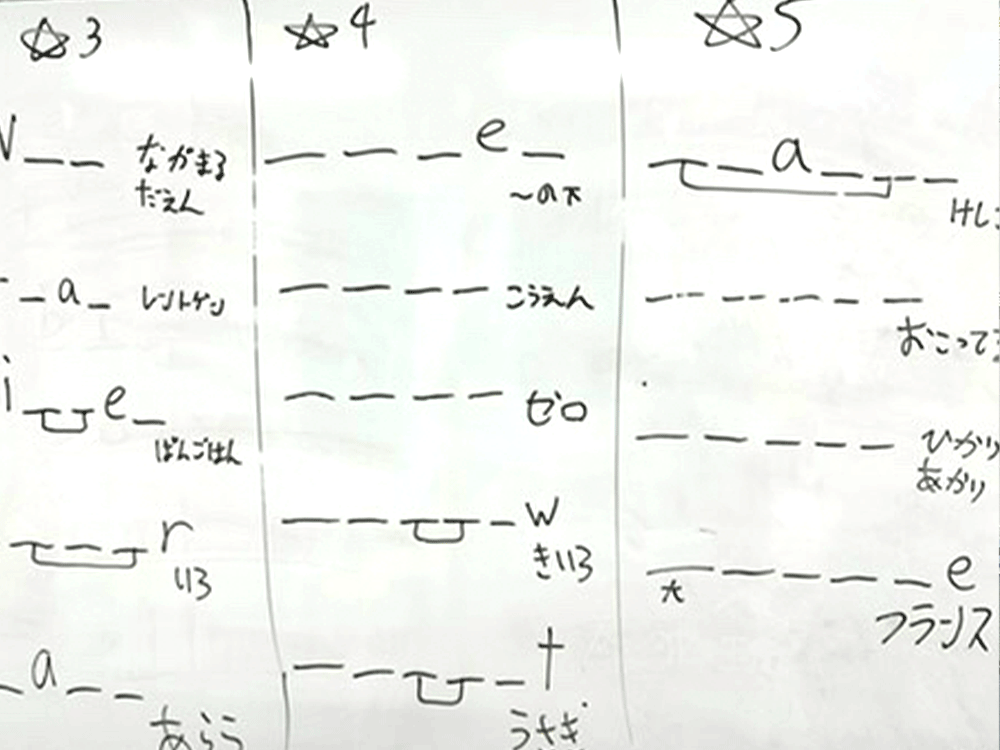 ☆3
ながまる
だえん
_ a _ レントゲン
i _ _ e _
ばんごはん
_ _ _ r
いろ
_ a _ _
☆4
_ _ _ e _
〜の下
_ _ _ _ こうえん
_ _ _ _ ゼロ
_ _ _ _ _ w
きいろ
_ _ _ _ _ t
うさぎ
☆5
_ _ a _ _ _
けし
_ _ _ _ _
おこって
_ _ _ _ _ ひかり
あかり
_ _ _ _ _ e
大
フランス